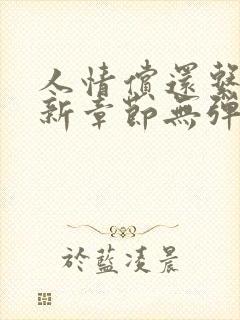 人情償還
新章節無彈
於藍凌晨